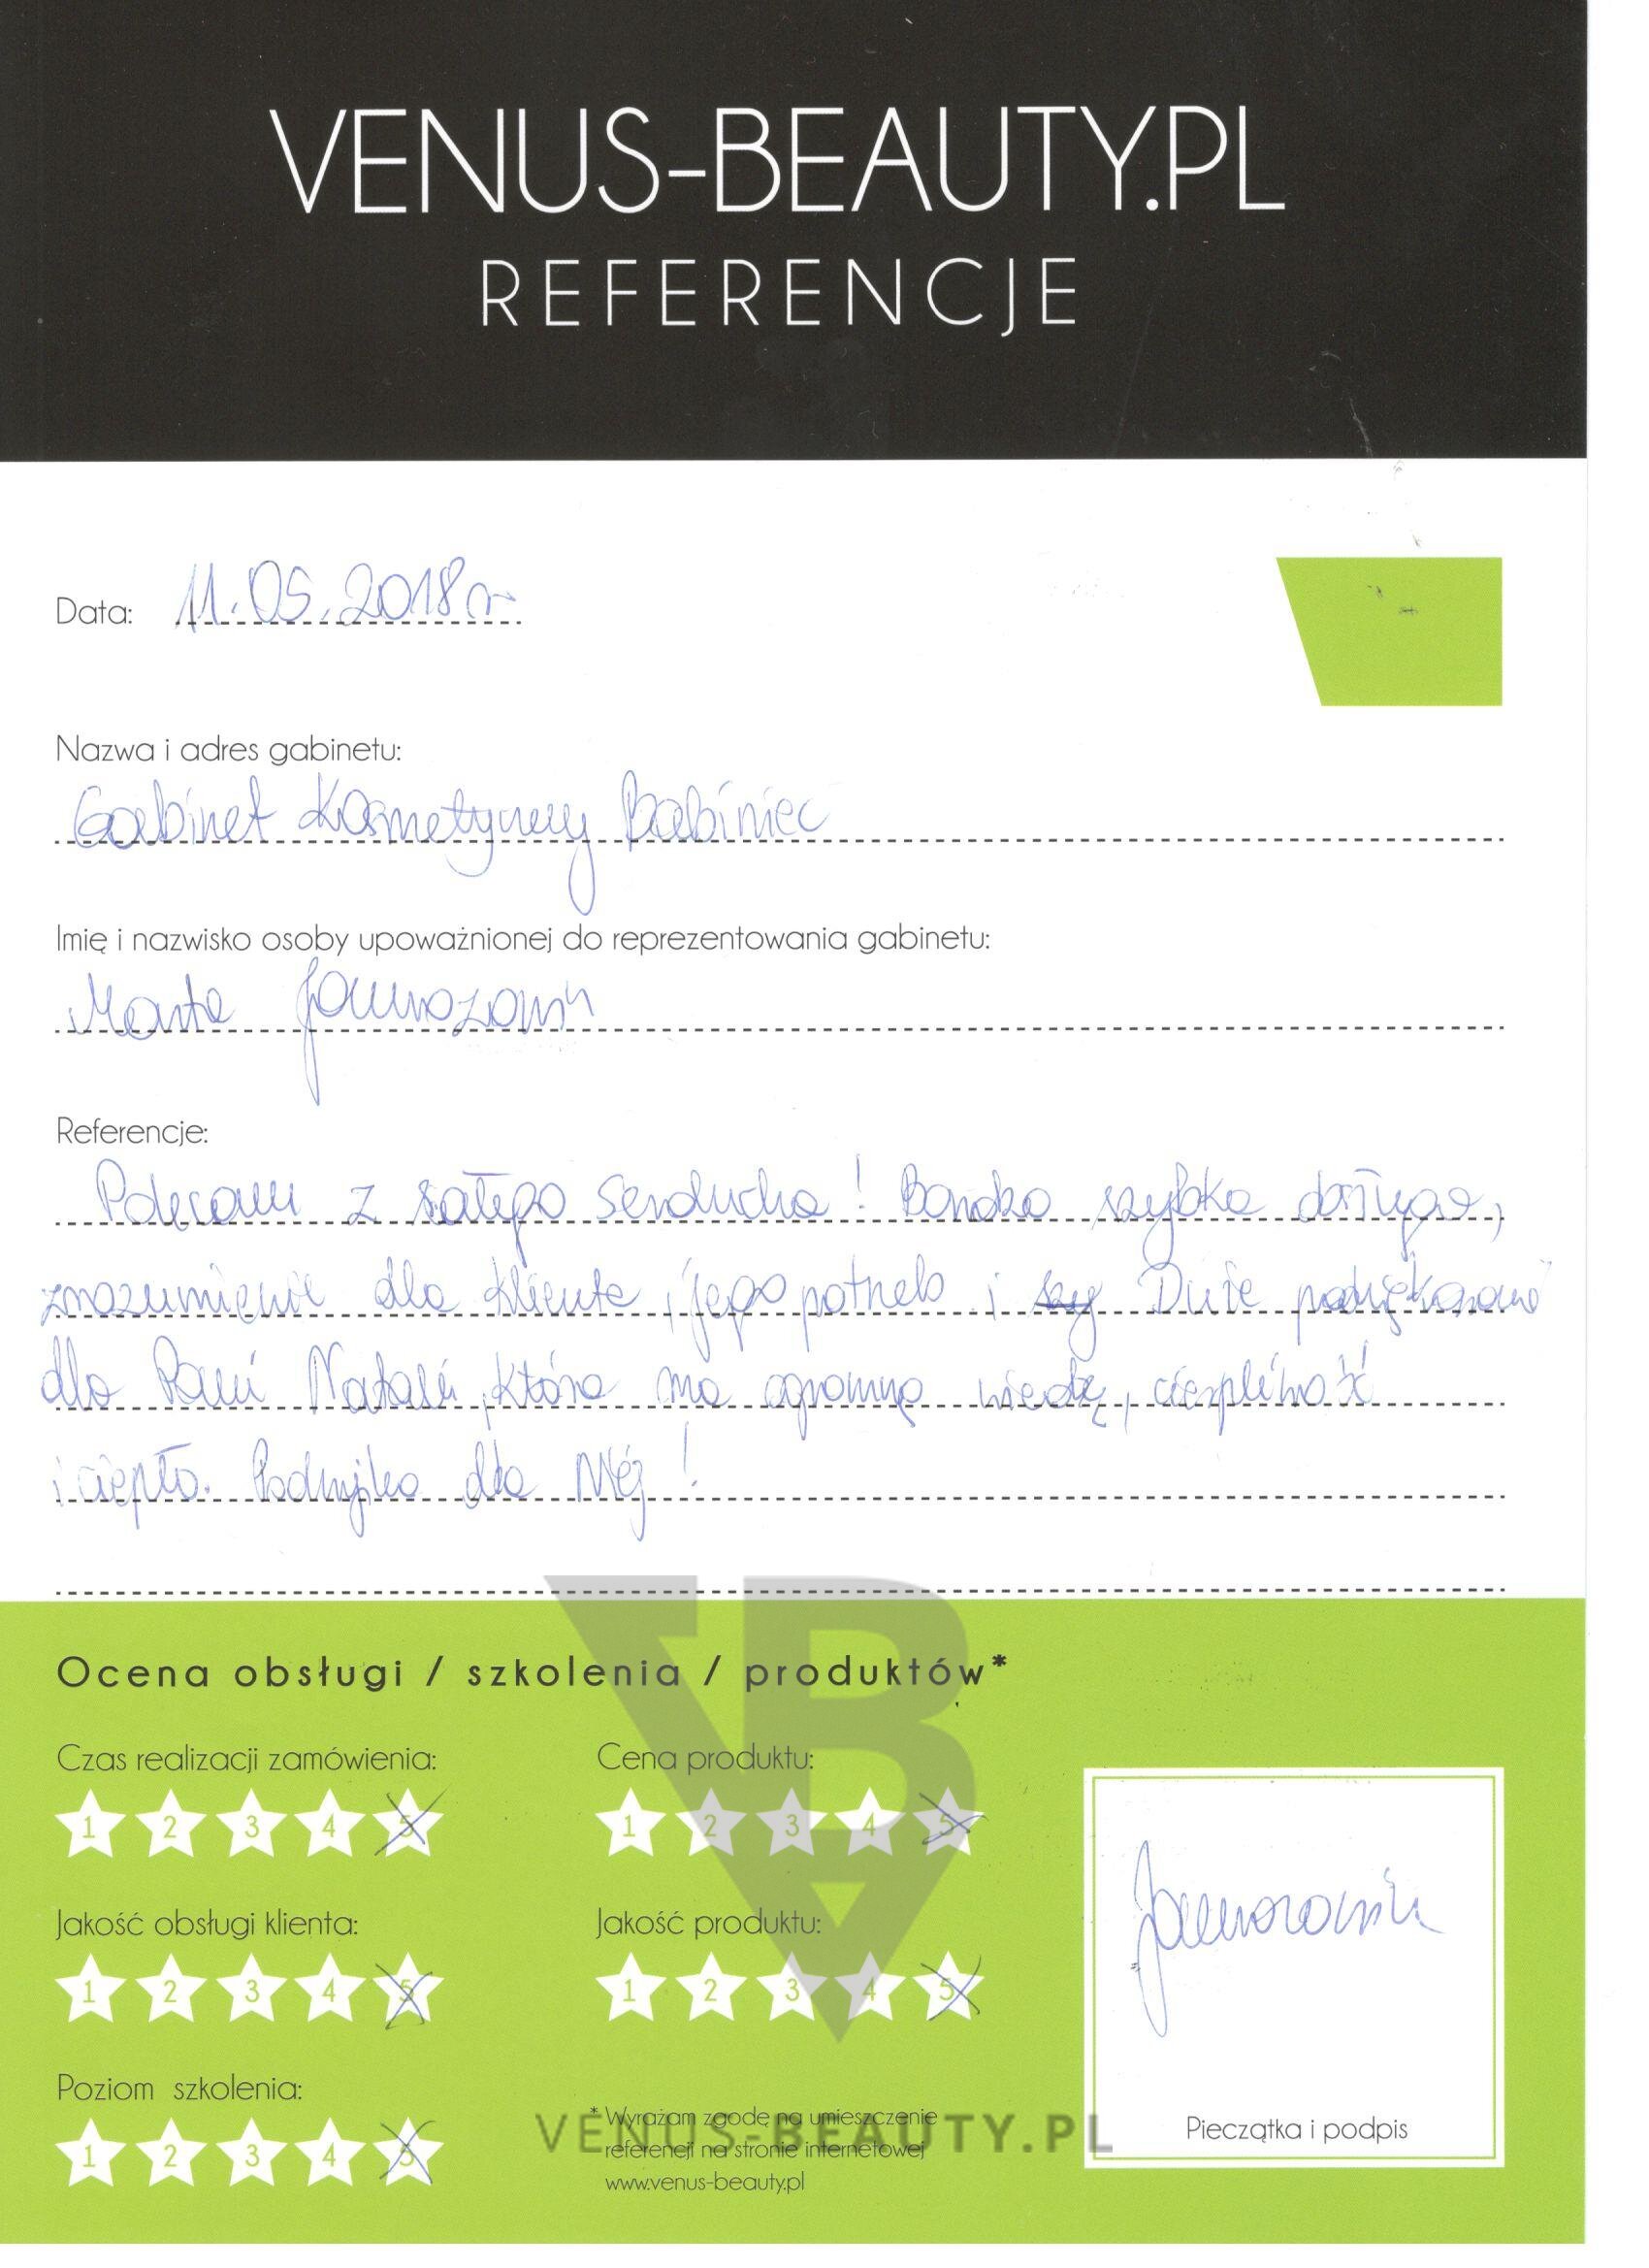 VENUS-BEAUTY.PL
REFERENCJE
Data: 11.05.2018r
Nazwa i adres gabinetu:
Gabinet Kosmetyczny Babiniec
Imię i nazwisko osoby upoważnionej do reprezentowania gabinetu:
Marta
Referencje:
Polecam z całego serducha! Bardzo szybka obsługa,
zrozumienie dla klienta i jego potrzeb i Duże podziękowania
dla Pani Natalii, która ma ogromną wiedzę, cierpliwość
i ciepło. Podwyżka dla Niej!
Ocena obsługi / szkolenia / produktów*
Czas realizacji zamówienia:
1 2 3 4 5
Cena produktu:
1 2 3 4 5
Jakość obsługi klienta:
1 2 3 4 5
Jakość produktu:
1 2 3 4 5
Poziom szkolenia:
1 2 3 4 5
* Wyrażam zgodę na umieszczenie
referencji na stronie internetowej
www.venus-beauty.pl
VENUS-BEAUTY.PL
Pieczątka i podpis